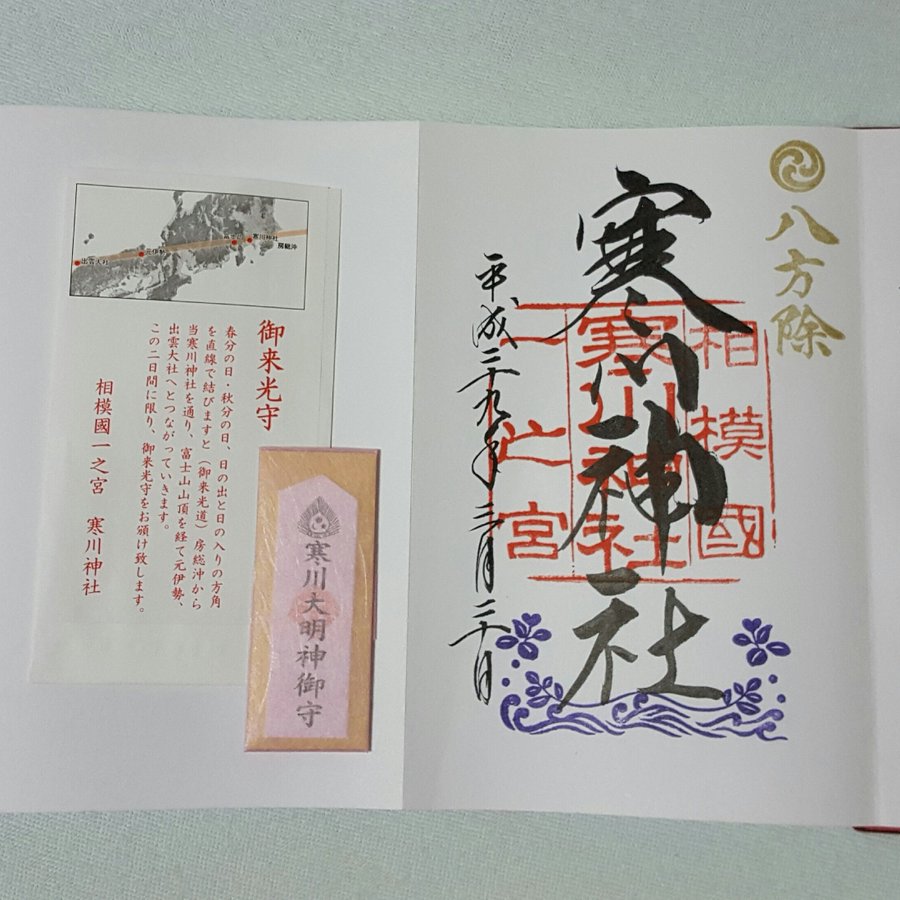 八方除
寒川神社
相模國
寒川神社
一之宮
平成二十九年三月二十日
出雲大社
元伊勢
富士山
寒川神社
房総沖
御来光守
春分の日・秋分の日、日の出と日の入りの方角
を直線で結びますと（御来光道）房総沖から
当寒川神社を通り、富士山山頂を経て元伊勢、
出雲大社へとつながっていきます。
この二日間に限り、御来光守をお頒け致します。
相模國一之宮 寒川神社
寒川大明神御守